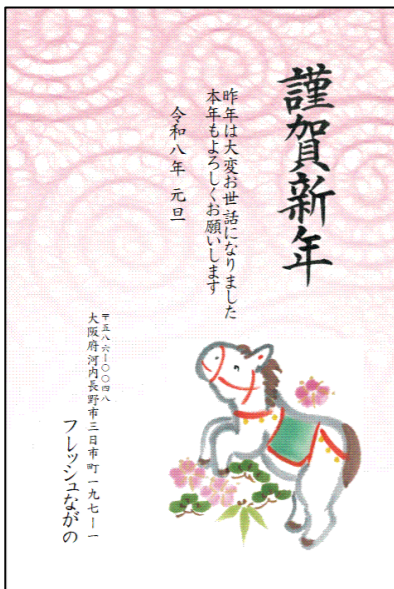 謹賀新年
昨年は大変お世話になりました
本年もよろしくお願いします
令和八年 元旦
〒五八六－〇〇四八
大阪府河内長野市三日市町一九七－一
フレッシュながの